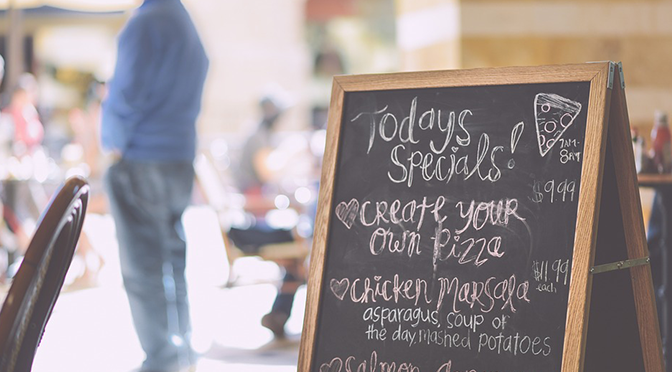 Today's
Specials!
7AM-
8PM
$9.99
Create your
own Pizza
$11.99
each
Chicken Marsala
asparagus, soup of
the day, mashed potatoes
Salmon